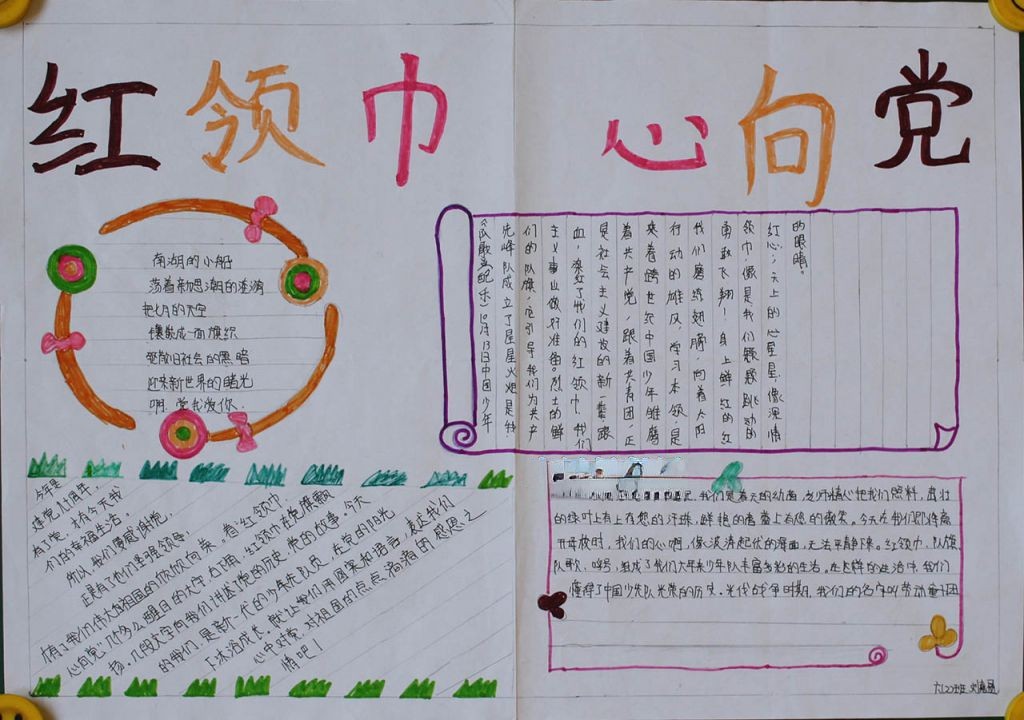 红领巾 心向党
南湖的小船
荡着新思潮的涟漪
把七月的天空
镶嵌成一面旗织
驱散旧社会的黑暗
迎来新世界的曙光
啊，党我爱你
今年是
建党九十周年，
有了党，才有今天我
们的幸福生活。
所以，我们要感谢党，
正是有了他们的英明领导，
才有了我们伟大的祖国的欣欣向荣。看"红领巾，
心向党"几个多么醒目的大字，台下用，红领巾在党旗飘
扬。几段文字向我们讲述了党的历史，党的故事，今天
的我们，是新一代的少年先队员，在党的阳光
下沐浴成长，就让我们用图案和语言，表达我们
心中对党，对祖国的点点滴滴的感恩之
情吧！
10月13日中国少年
先峰队成立了星星火炬是我
们的队旗，它引导我们为共产
主义事业做好准备。烈士的鲜
血，染红了我们的红领巾，我们
是社会主义建设的新一辈，跟
着共产党，跟着共青团，正
来着跨世纪中国少年雏鹰
行动的雄风，学习本领，是
我们磨练翅膀，向着太阳
奋飞翔！身上鲜红的红
领巾像是我们颗颗跳动的
红心；天上的星星，像深情
的眼睛。
我们是春天的幼苗，老师精心把我们照料，茁壮
的绿叶上有您的汗珠，鲜艳的花蕾上有您的微笑。今天在我们即将离
开母校时，我们的心啊，像波涛起伏的海面，无法平静下来。红领巾，队旗，
队歌，哨号，组成了我们六年来少年队丰富多彩的生活。在这样的生活中，我们
懂得了中国少先队光荣的历史，光代战争时期，我们的名字叫劳动童子团
六（2）班